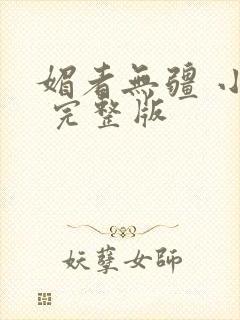 媚者無疆 小
完整版
妖孽女師